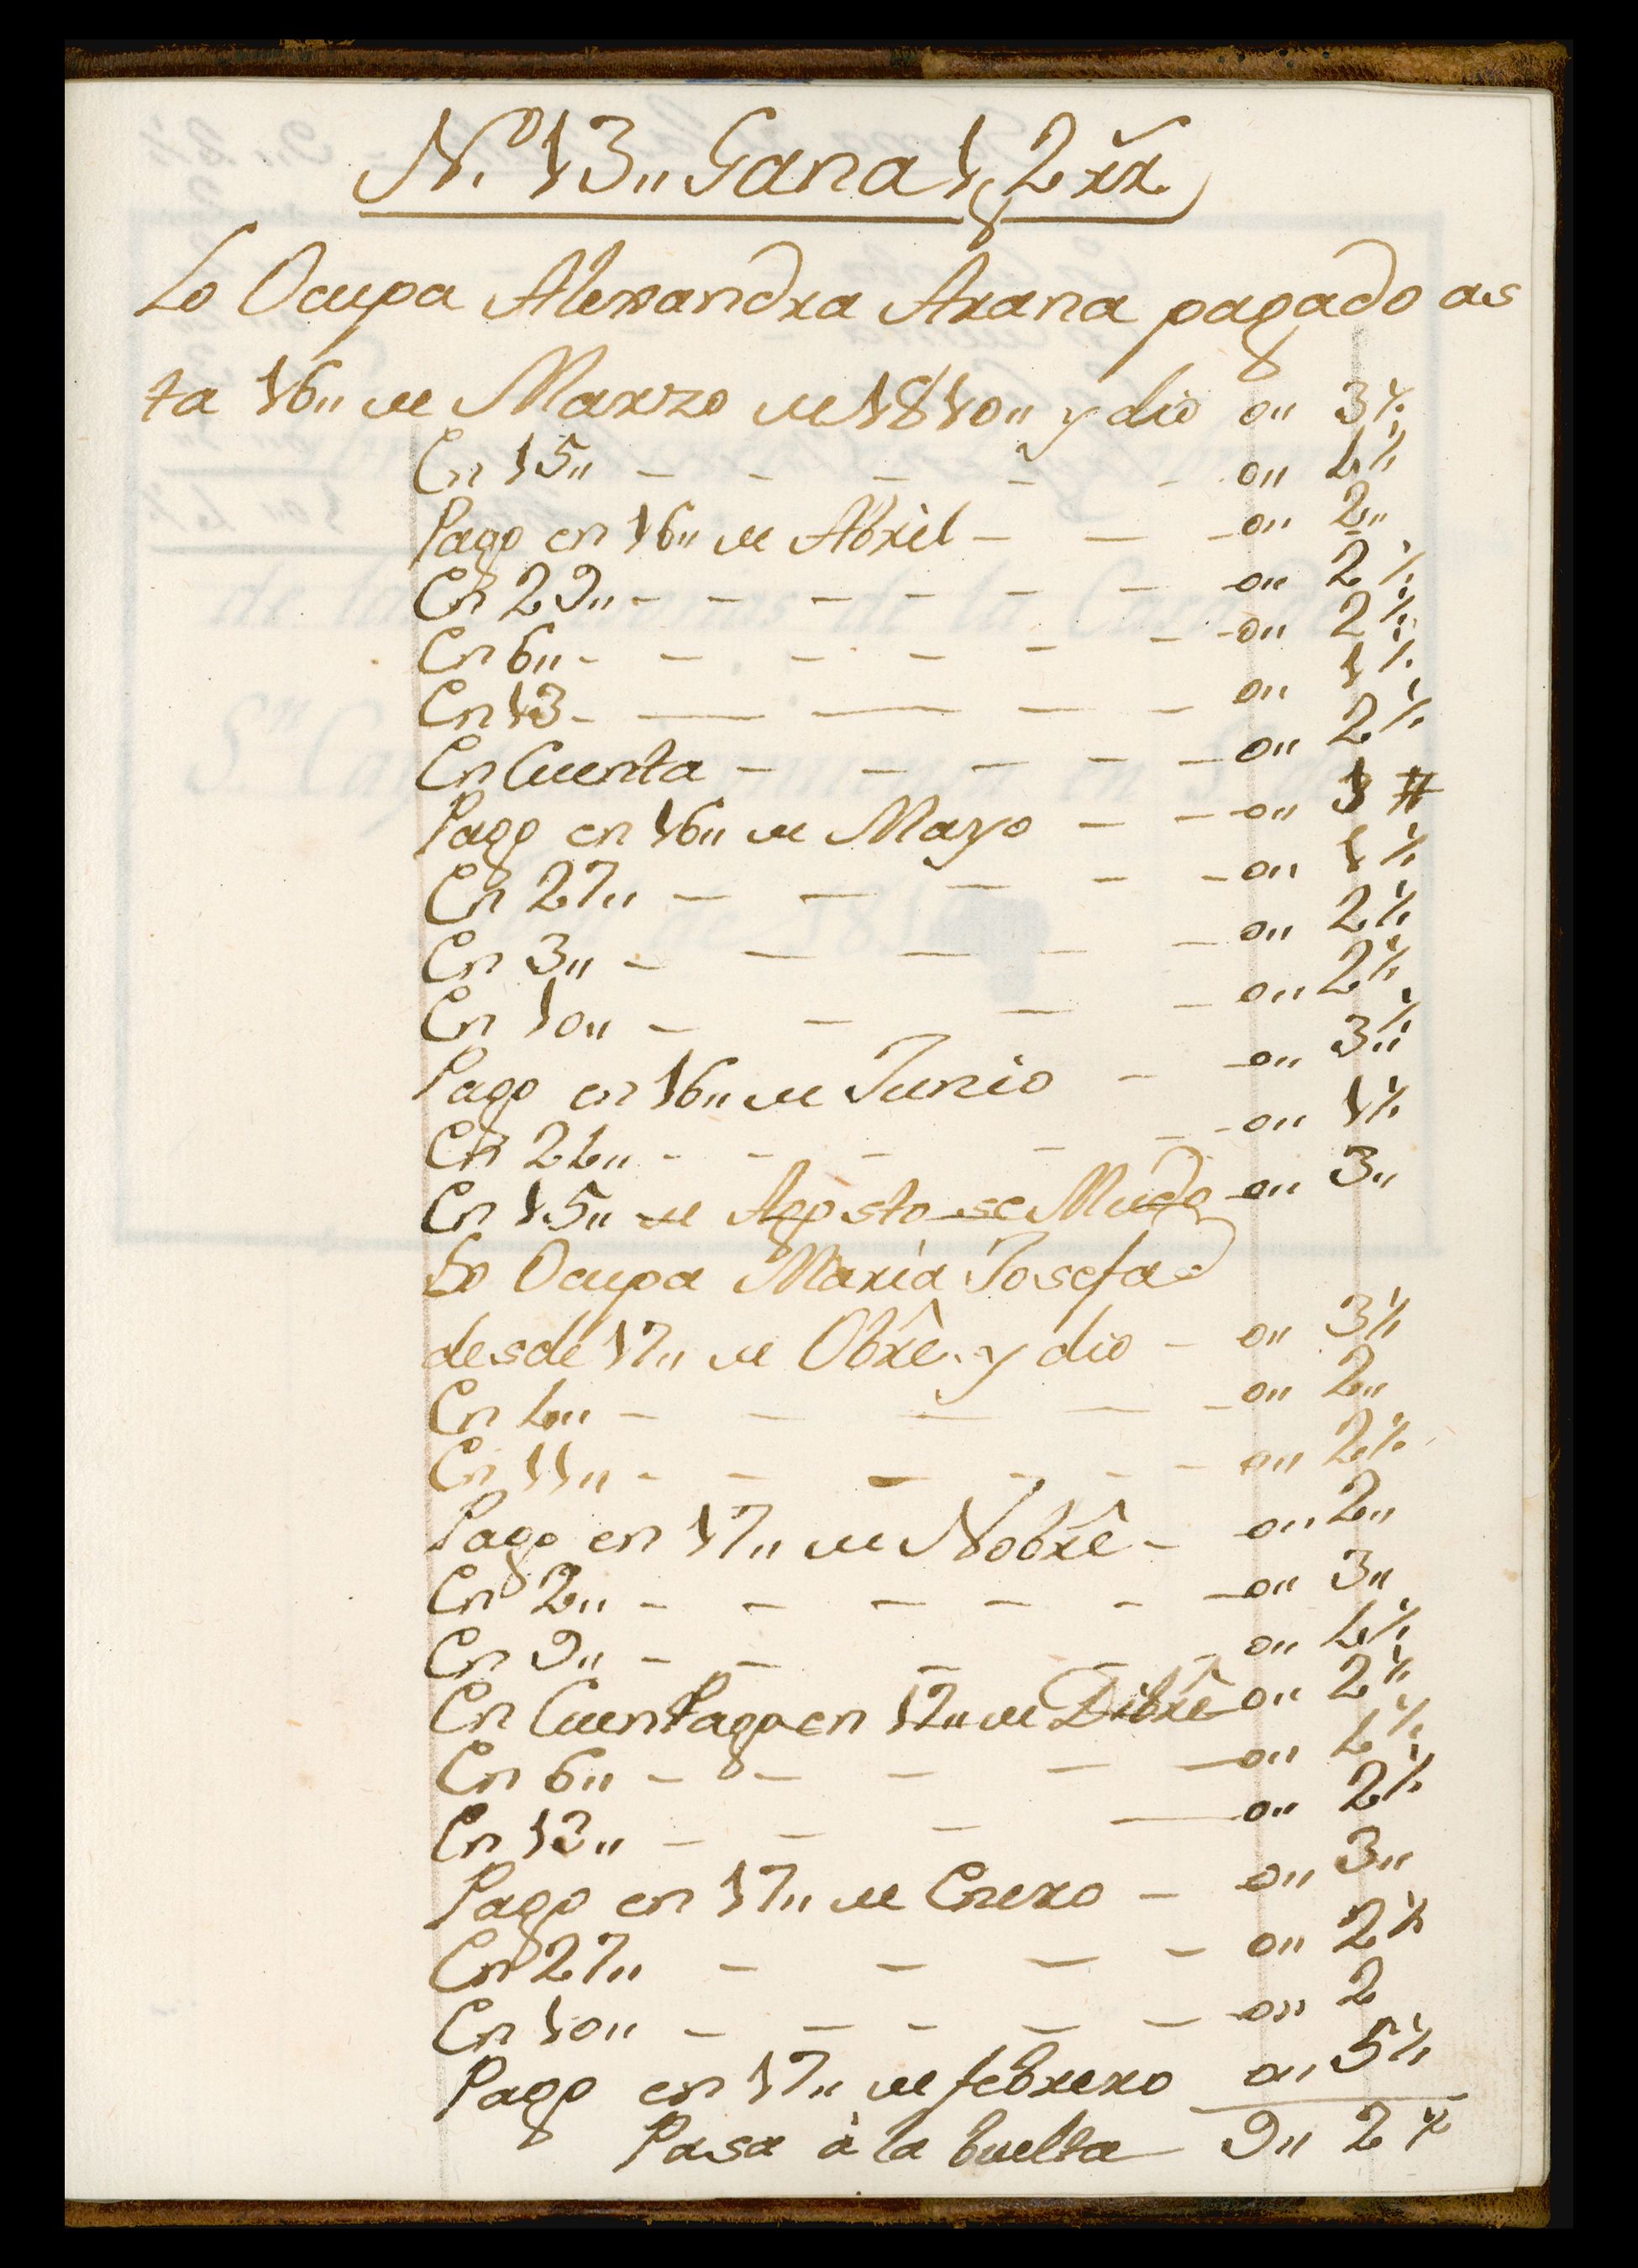 N.º 13,, Gana 12 rr.
Lo Ocupa Alexandra Arana pagado as
ta 16,, de Marzo de 1810,, y dio 0,, 3½
En 15,, - - - - - 0,, 1½
Pago en 16,, de Abril - - - 0,, 2,,
En 29,, - - - - - - 0,, 2½
En 6,, - - - - - - 0,, 2½
En 13 - - - - - 0,, 1½
En Cuenta - - - - - 0,, 2½
Pago en 16,, de Mayo - - 0,, 3
En 27,, - - - - - 0,, 1½
En 3,, - - - - - 0,, 2½
En 10,, - - - - 0,, 2½
Pago en 16,, de Junio - - 0,, 3½
En 21,, - - - - - 0,, 1½
En 15,, de Agosto se Mudo 0,, 3,,
Lo Ocupa Maria Josefa
desde 17,, de Obrê. y dio - 0,, 3½
En 4,, - - - - - 0,, 2,,
En 11,, - - - - - - 0,, 2½
Pago en 17,, de Nobrê - 0,, 2,,
En 2,, - - - - - - 0,, 3,,
En 9,, - - - - - 0,, 1½
En Cuen Pago en 17,, de Dibrê 0,, 2½
En 6,, - - - - - 0,, 1½
En 13,, - - - - 0,, 2½
Pago en 17,, de Enero - 0,, 3,,
En 27,, - - - - 0,, 2½
En 10,, - - - - - 0,, 2
Pago en 17,, de febrero 0,, 5½
Pasa à la buelta 9,, 2½